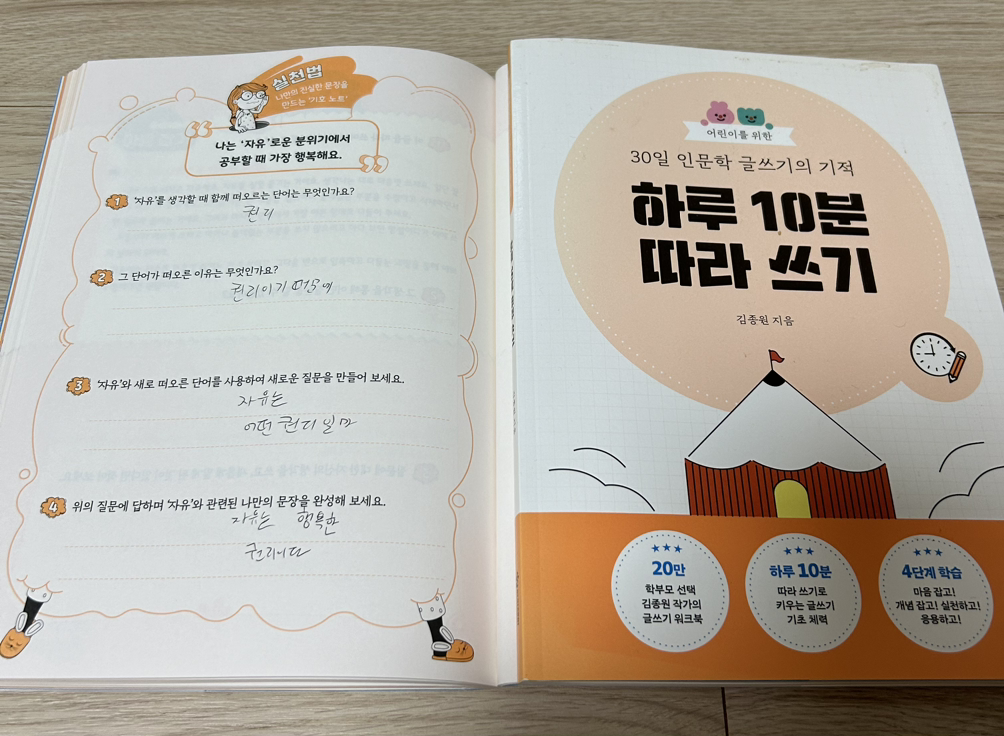 실천법
나만의 진실한 문장을
만드는 '기호 노트'
나는 '자유'로운 분위기에서
공부할 때 가장 행복해요.
1 '자유'를 생각할 때 함께 떠오르는 단어는 무엇인가요?
권리
2 그 단어가 떠오른 이유는 무엇인가요?
권리이기 때문에
3 '자유'와 새로 떠오른 단어를 사용하여 새로운 질문을 만들어 보세요.
자유는
어떤 권리일까
4 위의 질문에 답하며 '자유'와 관련된 나만의 문장을 완성해 보세요.
자유는 행복한
권리이다
어린이를 위한
30일 인문학 글쓰기의 기적
하루 10분
따라 쓰기
김종원 지음
20만
학부모 선택
김종원 작가의
글쓰기 워크북
하루 10분
따라 쓰기로
키우는 글쓰기
기초 체력
4단계 학습
마음 잡고!
개념 잡고! 실천하고!
응용하고!